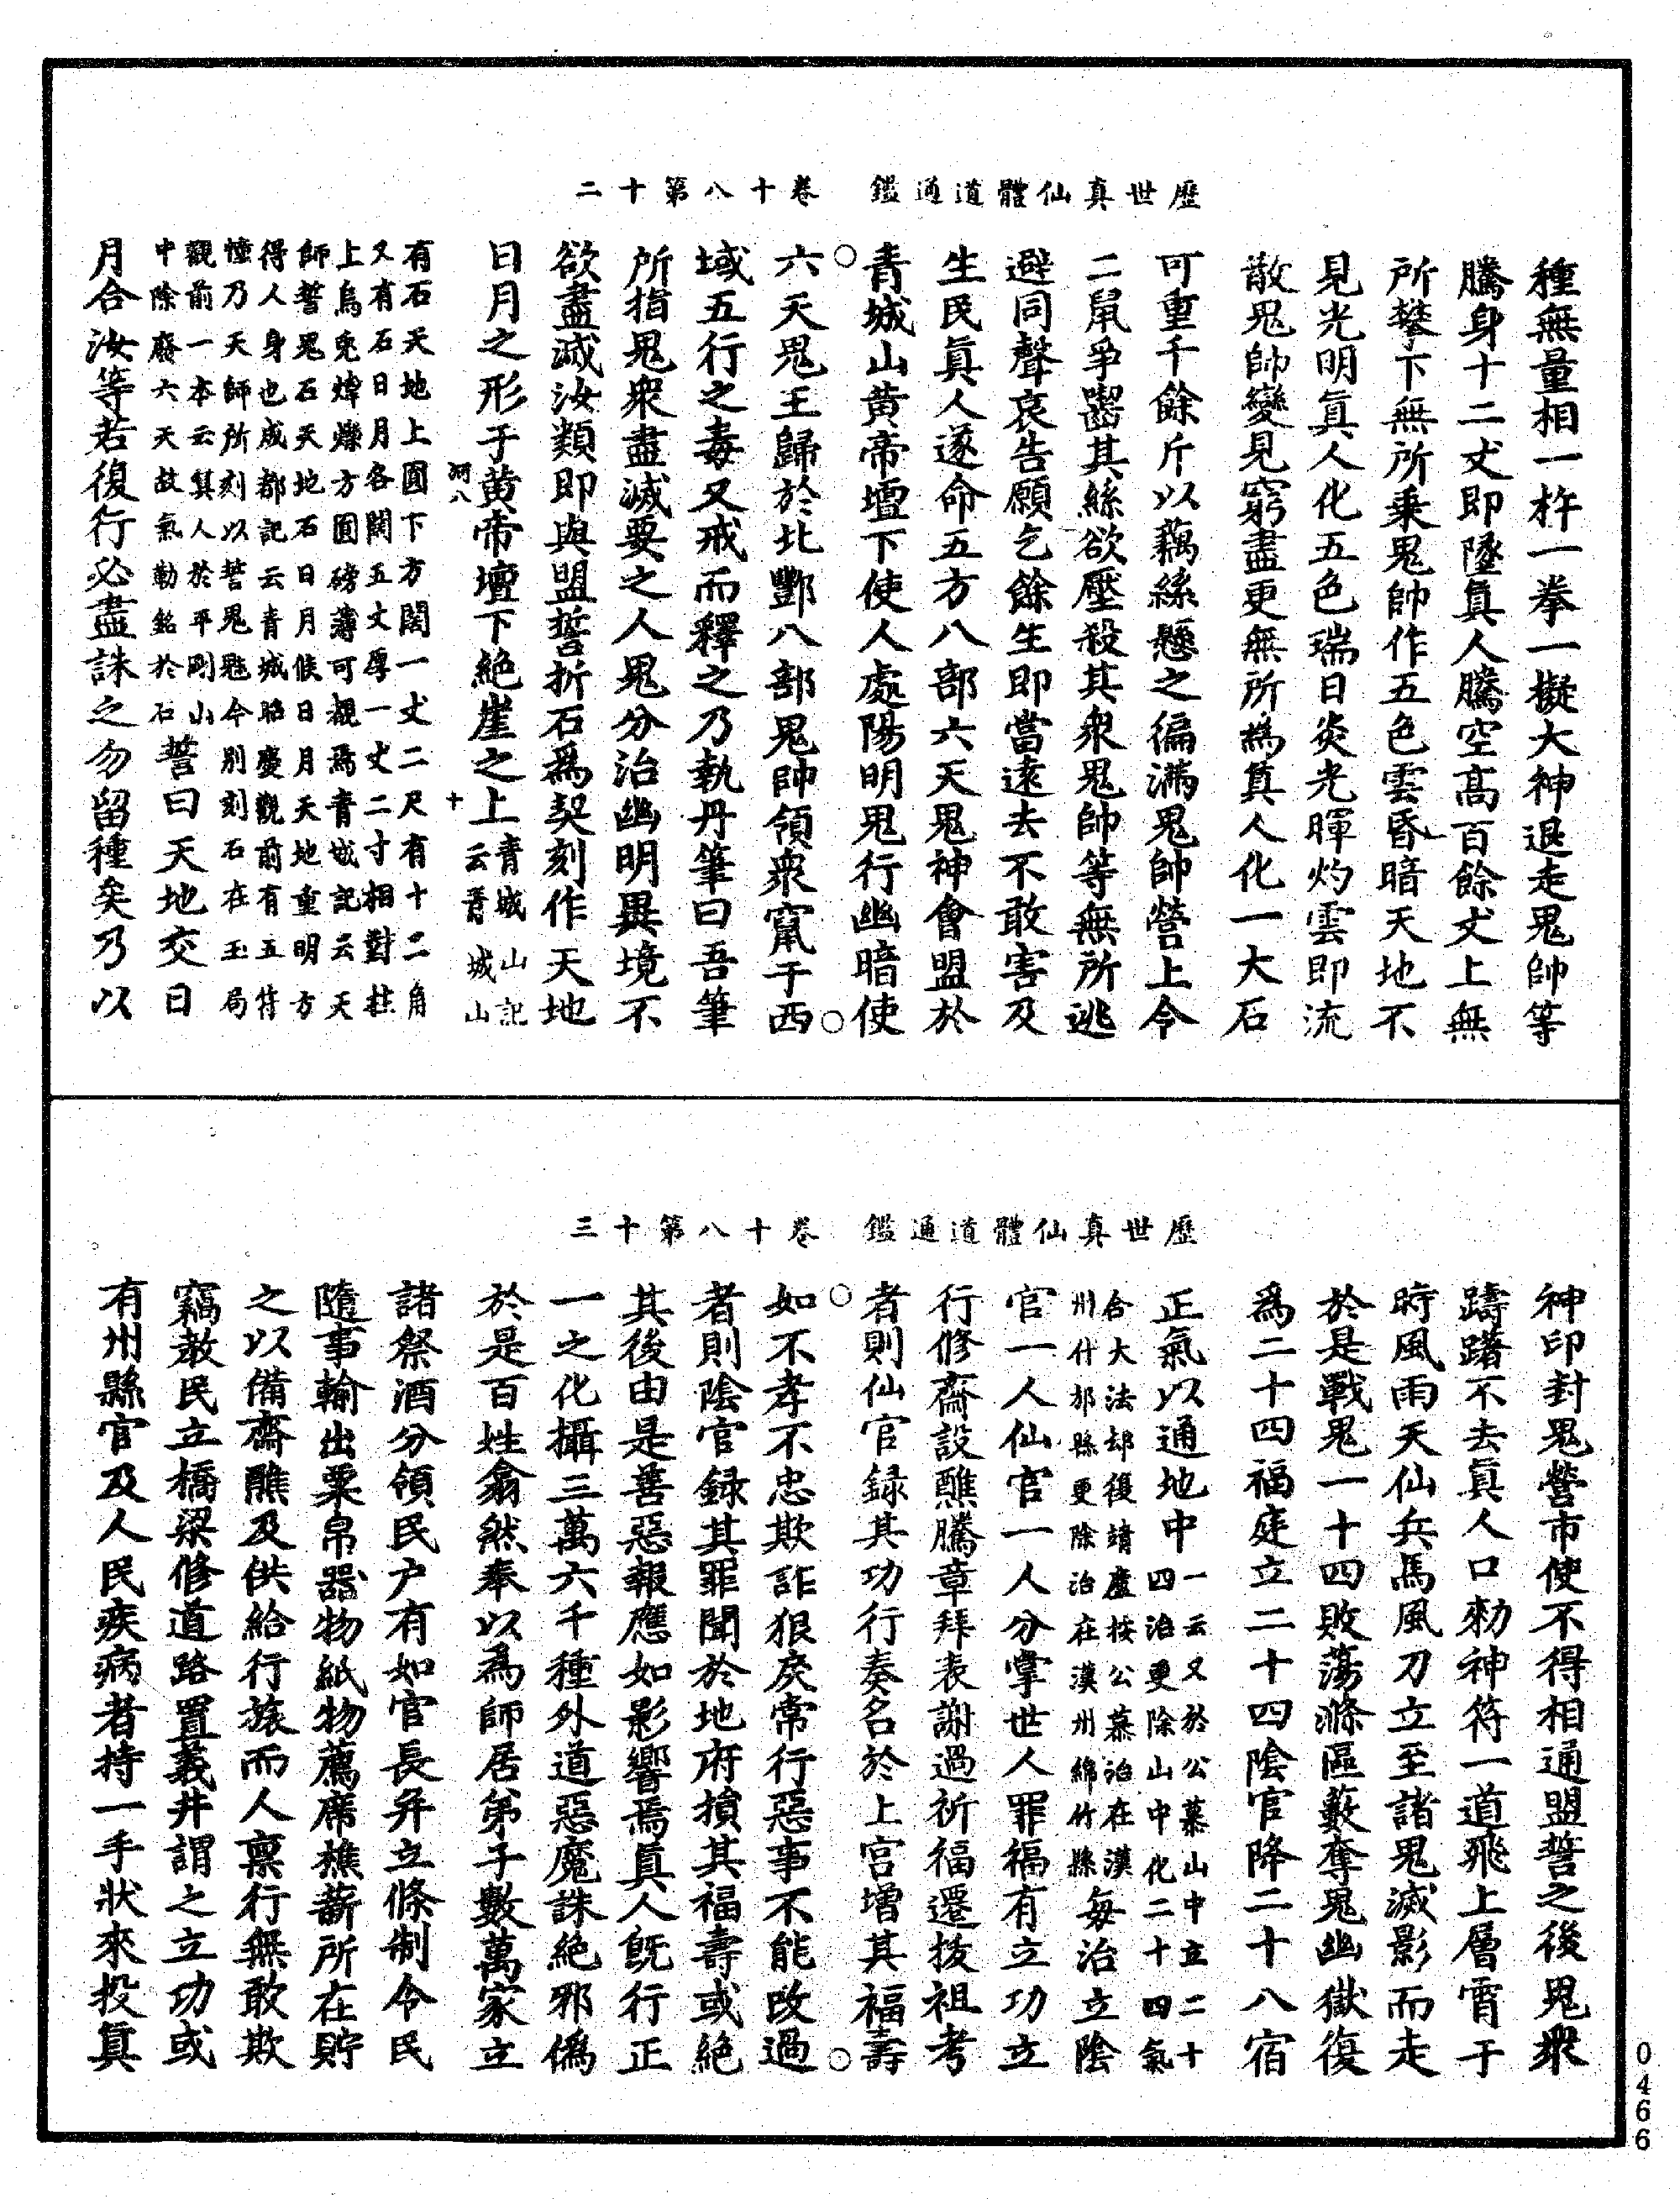 歷世真仙體道通鑑　卷十八第十二
種無量相一杵一拳一擬大神退走鬼帥等
騰身十二丈即墜真人騰空高百餘丈上無
所攀下無所乘鬼帥作五色雲昏暗天地不
見光明真人化五色瑞日炎光暉灼雲即流
散鬼帥變見窮盡更無所為真人化一大石
可重千餘斤以藕絲懸之徧滿鬼帥營上令
二鼠爭齧其絲欲壓殺其衆鬼帥等無所逃
避同聲哀告願乞餘生即當遠去不敢害及
生民真人遂命五方八部六天鬼神會盟於
青城山黄帝壇下使人處陽明鬼行幽暗使
六天鬼王歸於北酆八部鬼帥領衆竄于西
域五行之毒又戒而釋之乃執丹筆曰吾筆
所指鬼衆盡滅要之人鬼分治幽明異境不
欲盡滅汝類即與盟誓折石為契刻作天地
日月之形于黄帝壇下絶崖之上青城山記
云青城山
河八
十
有石天地上圓下方闊一丈二尺有十二角
又有石日月各闊五丈厚一丈二寸相對拄
上烏兔煒爍方圓磅薄可覩焉青城記云天
師誓鬼石天地石日月候日月天地重明方
得人身也成都記云青城昭慶觀前有五符
幢乃天師所刻以誓鬼魅今別刻石在玉局
觀前一本云真人於平剛山
中除廢六天故氣勒銘於石誓曰天地交日
月合汝等若復行必盡誅之勿留種矣乃以
歷世真仙體道通鑑　卷十八第十三
神印封鬼營市使不得相通盟誓之後鬼衆
躊躇不去真人口勑神符一道飛上層霄于
時風雨天仙兵馬風刀立至諸鬼滅影而走
於是戰鬼一十四敗蕩滌區藪奪鬼幽獄復
為二十四福庭立二十四陰官降二十八宿
正氣以通地中一云又於公慕山中立二十
四治更除山中化二十四氣
合大法却復靖廬按公慕治在漢
州什邡縣更除治在漢州綿竹縣每治立陰
官一人仙官一人分掌世人罪福有立功立
行修齋設醮騰章拜表謝過祈福遷拔祖考
者則仙官録其功行奏名於上宫增其福壽
如不孝不忠欺詐狠戾常行惡事不能改過
者則陰官録其罪聞於地府損其福壽或絶
其後由是善惡報應如影響焉真人既行正
一之化攝三萬六千種外道惡魔誅絶邪僞
於是百姓翕然奉以為師居弟子數萬家立
諸祭酒分領民户有如官長并立條制令民
隨事輸出粟帛器物紙物薦席樵薪所在貯
之以備齋醮及供給行旅而人稟行無敢欺
竊教民立橋梁修道路置義井謂之立功或
有州縣官及人民疾病者持一手狀來投真
0466